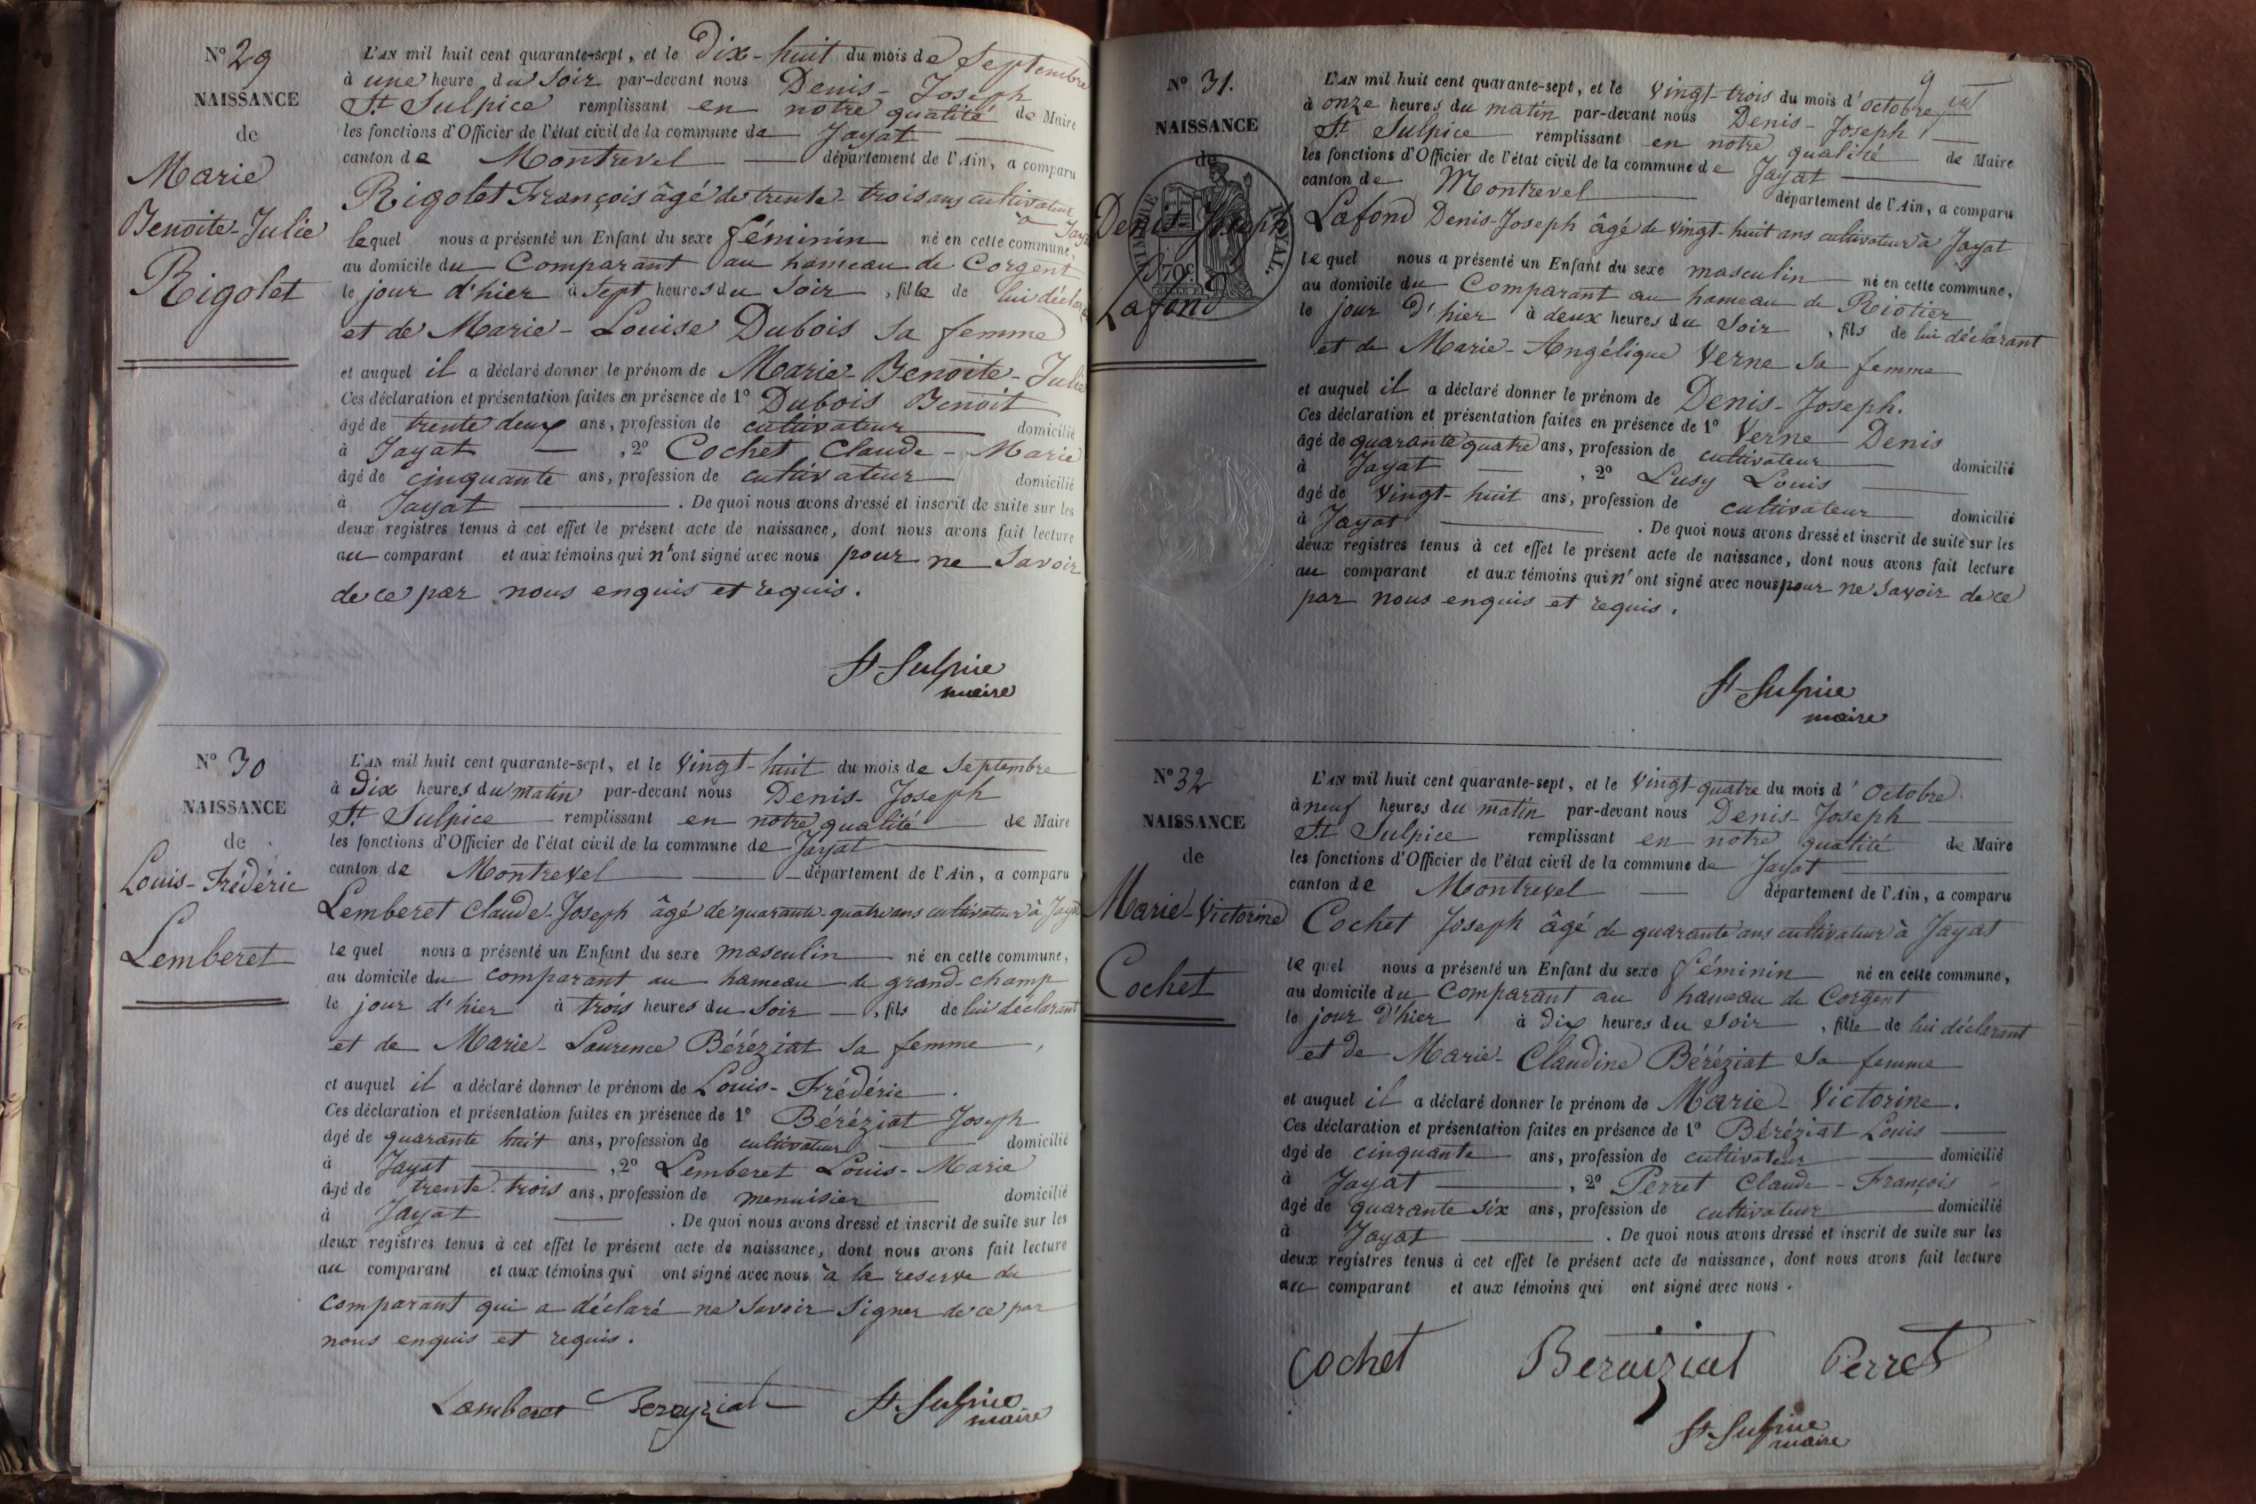 N° 29
NAISSANCE
de
Marie
Benoite-Julie
Rigolet
L'AN mil huit cent quarante-sept, et le Dix-huit du mois de Septembre
à une heure du Soir par-devant nous Denis-Joseph
St Sulpice remplissant en notre qualité de Maire
les fonctions d'Officier de l'état civil de la commune de Jayat
canton de Montrevel département de l'Ain, a comparu
Rigolet François âgé de trente-trois ans cultivateur
à Jayat
lequel nous a présenté un Enfant du sexe féminin né en cette commune,
au domicile du Comparant au hameau de Corgent
le jour d'hier à Sept heures du Soir, fille de lui déclarant
et de Marie-Louise Dubois sa femme
et auquel il a déclaré donner le prénom de Marie-Benoite-Julie
Ces déclaration et présentation faites en présence de 1° Dubois Benoit
âgé de trente deux ans, profession de cultivateur domicilié
à Jayat, 2° Cochet Claude-Marie
âgé de cinquante ans, profession de cultivateur domicilié
à Jayat. De quoi nous avons dressé et inscrit de suite sur les
deux registres tenus à cet effet le présent acte de naissance, dont nous avons fait lecture
au comparant et aux témoins qui n'ont signé avec nous pour ne savoir
de ce par nous enquis et requis.
St-Sulpice
maire
N° 30
NAISSANCE
de
Louis-Frédéric
Lemberet
L'AN mil huit cent quarante-sept, et le Vingt-huit du mois de Septembre
à Dix heures du matin par-devant nous Denis-Joseph
St Sulpice remplissant en notre qualité de Maire
les fonctions d'Officier de l'état civil de la commune de Jayat
canton de Montrevel département de l'Ain, a comparu
Lemberet Claude-Joseph âgé de quarante-quatre ans cultivateur à Jayat
lequel nous a présenté un Enfant du sexe masculin né en cette commune,
au domicile du comparant au hameau de grand-champ
le jour d'hier à trois heures du Soir, fils de lui déclarant
et de Marie-Laurence Béréziat sa femme,
et auquel il a déclaré donner le prénom de Louis-Frédéric.
Ces déclaration et présentation faites en présence de 1° Béréziat Joseph
âgé de quarante huit ans, profession de cultivateur domicilié
à Jayat, 2° Lemberet Louis-Marie
âgé de trente-trois ans, profession de menuisier domicilié
à Jayat. De quoi nous avons dressé et inscrit de suite sur les
deux registres tenus à cet effet le présent acte de naissance, dont nous avons fait lecture
au comparant et aux témoins qui ont signé avec nous à la reserve du
comparant qui a déclaré ne savoir signer de ce par
nous enquis et requis.
Lamberet Bereyziat St-Sulpice
maire
9
N° 31.
NAISSANCE
de
Denis-Joseph
Lafond
TIMBRE ROYAL.
70c
L'AN mil huit cent quarante-sept, et le Vingt-trois du mois d'octobre
à onze heures du matin par-devant nous Denis-Joseph
St Sulpice remplissant en notre qualité de Maire
les fonctions d'Officier de l'état civil de la commune de Jayat
canton de Montrevel département de l'Ain, a comparu
Lafond Denis-Joseph âgé de Vingt-huit ans cultivateur à Jayat
lequel nous a présenté un Enfant du sexe masculin né en cette commune,
au domicile du Comparant au hameau de Riotier
le jour d'hier à deux heures du Soir, fils de lui déclarant
et de Marie-Angélique Verne sa femme
et auquel il a déclaré donner le prénom de Denis-Joseph.
Ces déclaration et présentation faites en présence de 1° Verne Denis
âgé de quarante quatre ans, profession de cultivateur domicilié
à Jayat, 2° Lusy Louis
âgé de Vingt-huit ans, profession de cultivateur domicilié
à Jayat. De quoi nous avons dressé et inscrit de suite sur les
deux registres tenus à cet effet le présent acte de naissance, dont nous avons fait lecture
au comparant et aux témoins qui n'ont signé avec nous pour ne savoir de ce
par nous enquis et requis.
St-Sulpice
maire
N° 32
NAISSANCE
de
Marie-Victorine
Cochet
L'AN mil huit cent quarante-sept, et le Vingt-quatre du mois d'octobre
à neuf heures du matin par-devant nous Denis-Joseph
St Sulpice remplissant en notre qualité de Maire
les fonctions d'Officier de l'état civil de la commune de Jayat
canton de Montrevel département de l'Ain, a comparu
Cochet Joseph âgé de quarante ans cultivateur à Jayat
lequel nous a présenté un Enfant du sexe féminin né en cette commune,
au domicile du Comparant au hameau de Corgent
le jour d'hier à dix heures du Soir, fille de lui déclarant
et de Marie-Claudine Béréziat sa femme
et auquel il a déclaré donner le prénom de Marie-Victorine.
Ces déclaration et présentation faites en présence de 1° Béréziat Louis
âgé de cinquante ans, profession de cultivateur domicilié
à Jayat, 2° Perret Claude-François
âgé de quarante six ans, profession de cultivateur domicilié
à Jayat. De quoi nous avons dressé et inscrit de suite sur les
deux registres tenus à cet effet le présent acte de naissance, dont nous avons fait lecture
au comparant et aux témoins qui ont signé avec nous.
Cochet Beraiziat Perret
St-Sulpice
maire